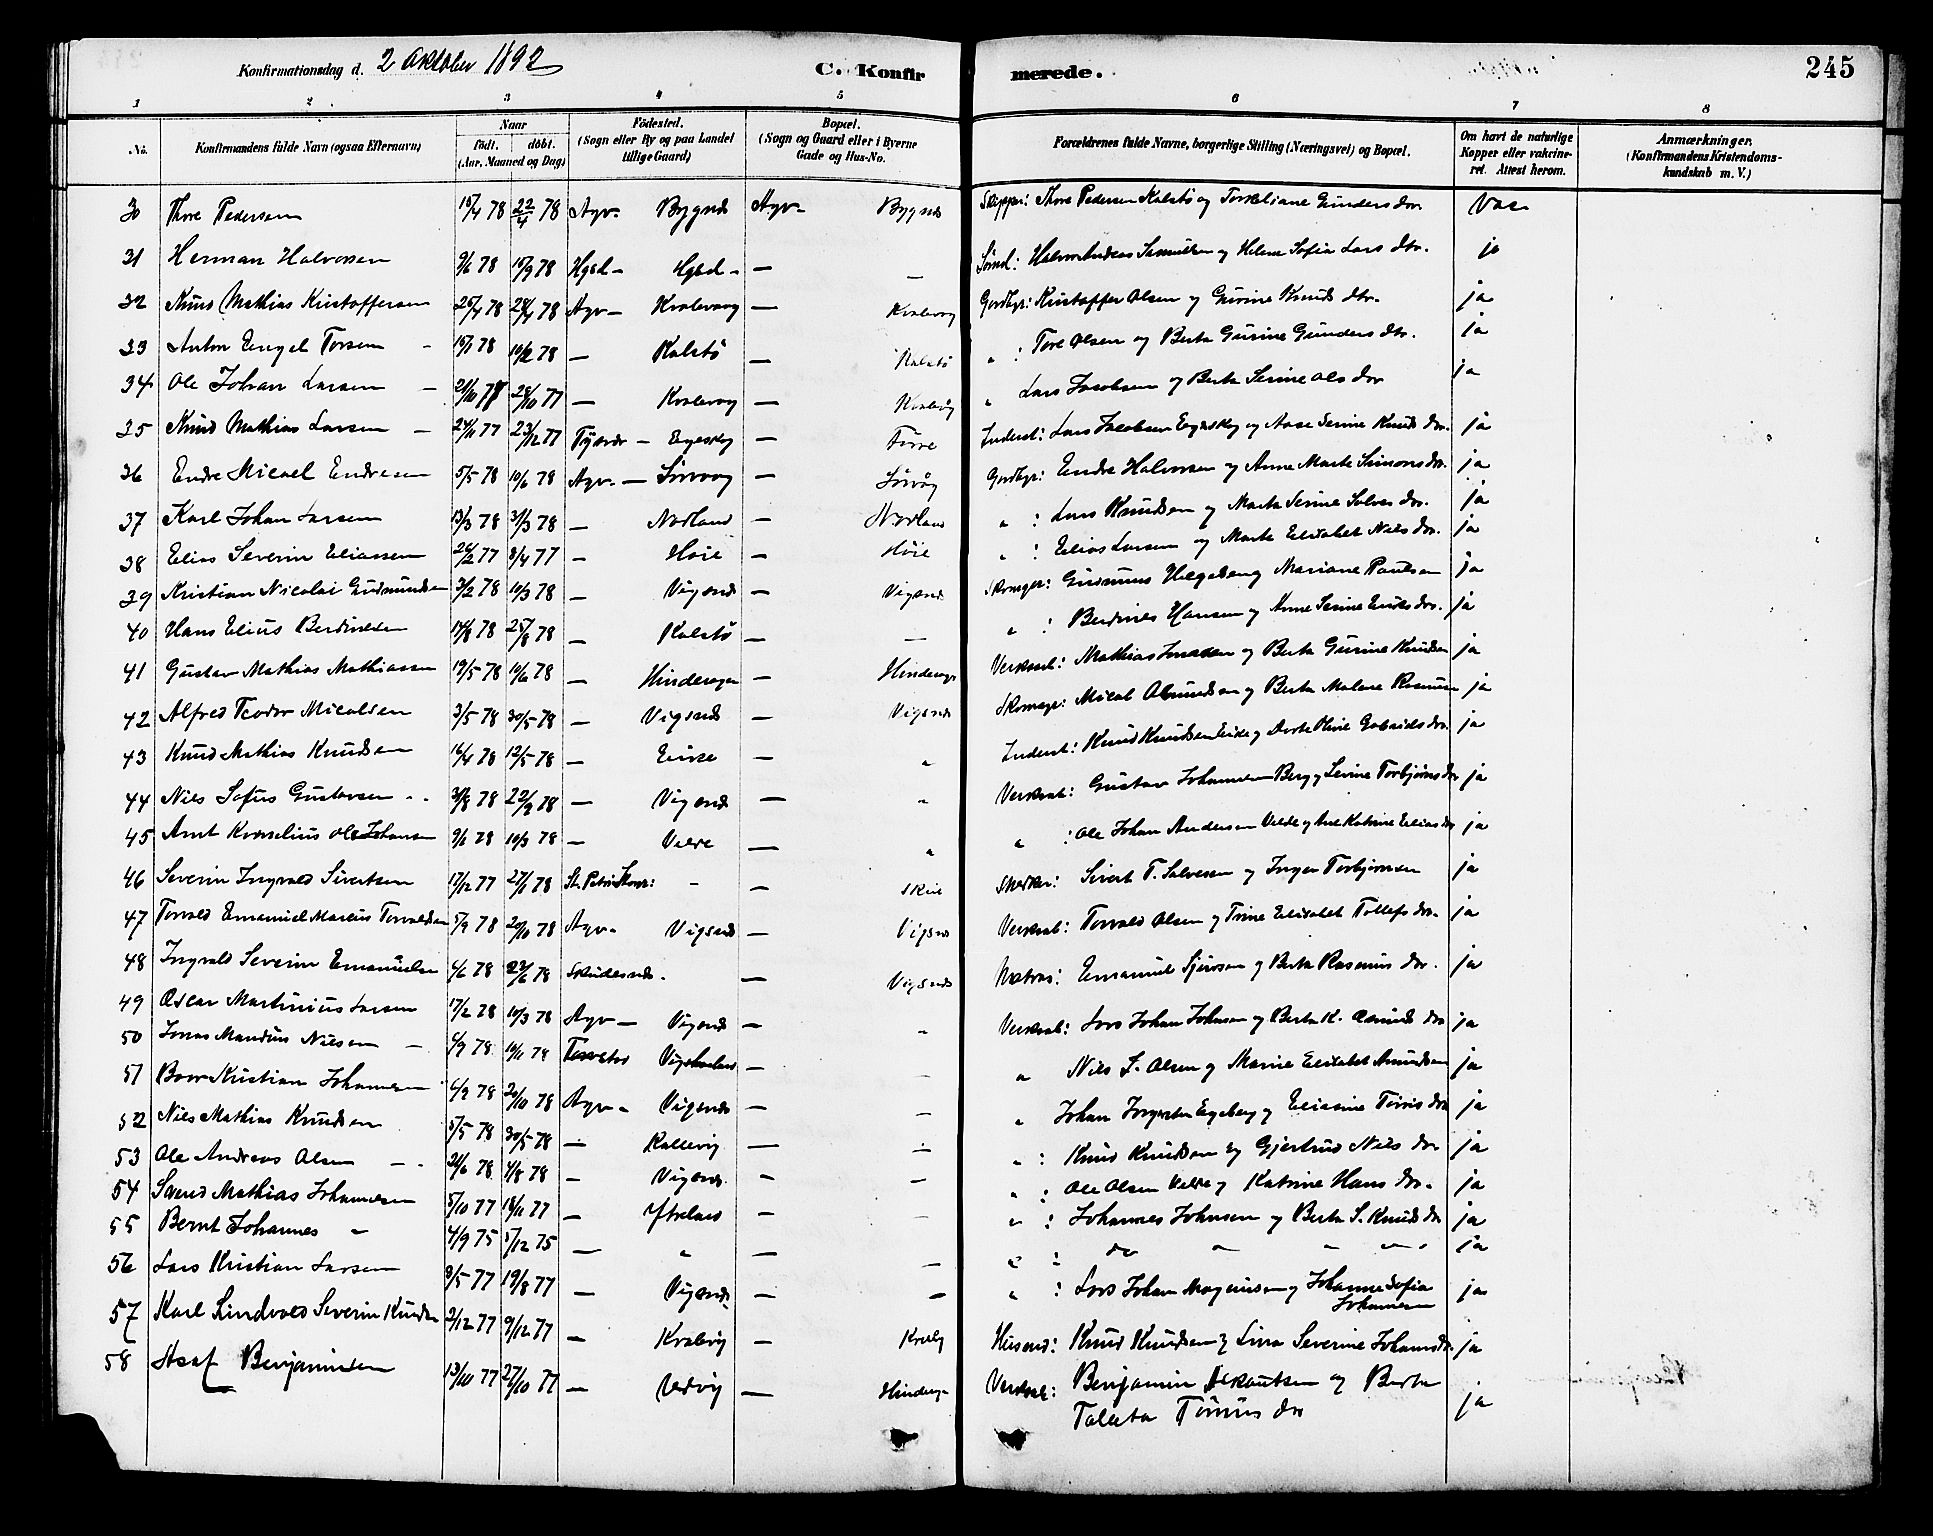 Konfirmationsdag d. 2 Oktober 1892 C. Konfirmerede. 245
1 2 3 4 5 6 7 8
No. Konfirmandens fulde Navn (ogsaa Efternavn) Naar födt. döbt. (Aar, Maaned og Dag) Födested. (Sogn eller By og paa Landet tillige Gaard) Bopæl. (Sogn og Gaard eller i Byerne Gade og Hus-No. Forældrenes fulde Navne, borgerlige Stilling (Næringsvei) og Bopæl. Om havt de naturlige Kopper eller vakcineret. Attest herom. Anmærkninger. (Konfirmandens Kristendomskundskab m. V.)
30 Thore Pedersen 15/4 78 22/4 78 Agv- Bygnes Agv- Bygnes Skipper: Thore Pedersen Kalstø og Torkeliane Gunders dtr Vac
31 Herman Halvorsen 9/6 78 15/9 78 Hgsd - Hgsd - — — Halvor Andreas Samuelsen og Helene Sofia Lars dtr. ja
32 Knud Mathias Kristoffersen 25/4 78 28/4 78 Agv — Kvalevaag — Kvalevag Gordbgr: Kristoffer Olsen og Gurine Knuds dtr. ja
33 Anton Engel Torsen 15/1 78 10/2 78 — Kalstø — Kalstø " : Tore Olsen og Berta Gurine Gunders dtr. ja
34 Ole Johan Larsen — 21/10 77 28/10 77 — Kvalevag — Kvalevåg " Lars Jacobsen og Berta Serine Ols dtr ja
35 Knud Mathias Larsen — 24/11 77 23/12 77 Tysvær — — Inderst: Lars Jacobsen og Aase Serine Knuds dtr. ja
36 Endre Micael Endresen 5/5 78 10/6 78 Agv. — Sørvaag — Sørvåg Gordbgr: Endre Halvorsen og Anne Marte Simons dtr. ja
37 Karl Johan Larsen 13/3 78 31/3 78 — Nordland — " : Lars Knudsen og Marta Serine dtr. ja
38 Elias Severin Eliassen 24/2 77 8/4 77 — Høie — Høie " : Elias Larsen og Marte Elisabet Nils dtr. ja
39 Kristian Nicolai Gudmundsen 3/2 78 10/3 78 — Vigsnes — Vigsnes Skomager: Gudmund og Mariane Paulsen ja
40 Hans Elius Berdinesen 14/8 78 25/8 78 — Kalstø — — " : Berdines Hansen og Anne Serine dtr. ja
41 Gustav Mathias Mathiassen 19/5 78 10/6 78 — — Verksarb: Mathias og Berta Gurine Knudsen ja
42 Alfred Teodor Micalsen 3/5 78 30/5 78 — Vigsnes — Vigsnes Skomagr: Mical og Berta Malene Rasmus ja
43 Knud Mathias Knudsen 16/4 78 12/5 78 — — " Inderst: Knud Knudsen og Dorte Oline dtr. ja
44 Nils Sofus Gustavsen 22/9 78 — Vigsnes — " Verksarb: Gustav Johannesen Berg og Serine Torbjørns dtr ja
45 Arnt Kornelius Ole Johansen 9/1 78 10/3 78 — Velde — " " : Ole Johan Andersen Velde og Ane Katrine Elias dtr ja
46 Severin Ingvald Sivertsen 17/12 77 27/1 78 St. Petri Stavg: - — Sivert T. Salvesen og Inger Torbjornsen ja
47 Torvald Emanuel Marcus Torvaldsen 5/9 78 20/10 78 Agv- Vigsnes — Vigsnes Verksarb: Torvald Olsen og Trine Elisabet Tollefs dtr. ja
48 Ingvald Severin Emanuelsen 4/6 78 23/6 78 Skudesnes. — Vigsnes Matros: Emanuel og Berta Rasmus dtr. ja
49 Oscar Martinius Larsen 17/2 78 10/3 78 Agv — Vigsnes — " Verksarb: Lars Johan Johnsen og Berta K. dtr ja
50 Jonas Mandius Nilsen — 6/9 78 10/11 78 Torvestad — — " Nils J. Olsen og Marie Elisabet Amundsen ja
51 Kristian Johannesen 6/9 78 20/10 78 Agv - Vigsnes — — " Johan og Eliasine dtr ja
52 Nils Mathias Knudsen 5/5 78 30/5 78 — Kallevig — — " : Knud Knudsen og Gjertrud Nils dtr ja
53 Ole Andreas Olsen — 24/6 78 4/8 78 — Vigsnes — — " : Ole Olsen Velde og Katrine Hans dtr. ja
54 Svend Mathias Johannesen 5/10 77 18/11 77 — Ytreland — — " : Johannes Johnsen og Berta S. Knuds dtr ja
55 Bernt Johannes " 4/9 75 5/12 75 — " — " : do " " " ja
56 Lars Kristian Larsen 9/5 77 19/8 77 — Vigsnes — — " : Lars Johan Magnusen og Johanne Sofia Johannesen ja
57 Karl Lindvald Severin Knudsen 2/12 77 9/12 77 — Kvalevig — Husmd: Knud Knudsen og Lina Severine Johans dtr. ja
58 Asaf Benjaminsen 13/10 77 27/10 77 — Vedvig — Verksarb: Benjamin og Berta
Taletta dtr ja